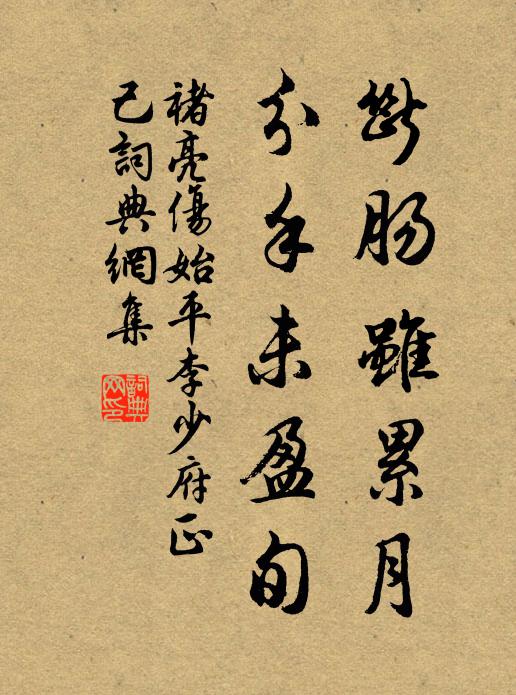 斷腸雖累月
分手未盈旬
褚亮傷始平李少府正
己詞典網集
詞典
网印